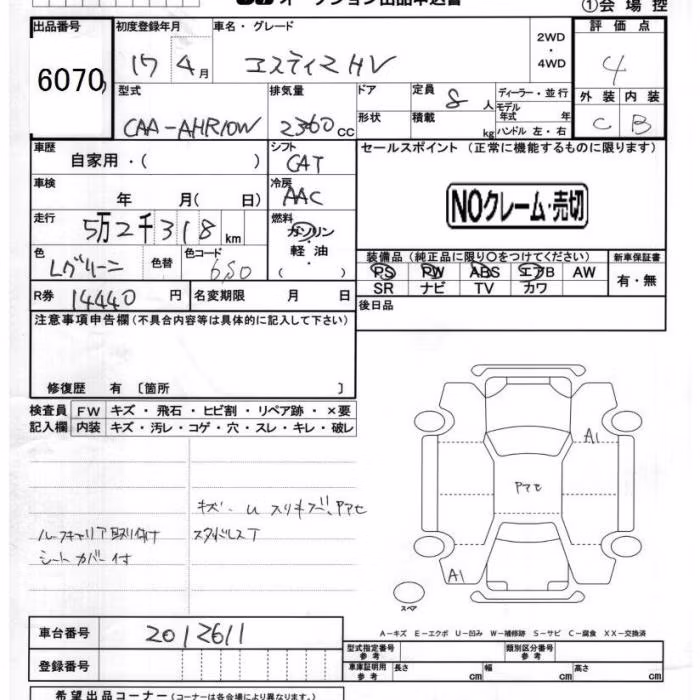 オークション出品申込書
①会場控
出品番号 初度登録年月 車名・グレード 2WD・4WD 評価点
6070 17 4月 エスティマHV 4
型式 排気量 ドア 定員 8人 ディーラー・並行 外装 内装
CAA-AHR10W 2360cc 形状 積載 kg モデル年式 年 ハンドル 左・右 C B
車歴 自家用・( ) シフト CAT セールスポイント (正常に機能するものに限ります)
車検 年 月( 日) 冷房 AAC
NOクレーム・売切
走行 5万2千318km 燃料 ガソリン・軽油 ( )
色 Lグリーン 色替 色コード 6S0
装備品 (純正品に限り○をつけてください) 新車保証書
PS PW ABS エアB AW 有・無
SR ナビ TV カワ
R券 14440円 名変期限 月 日 後日品
注意事項申告欄 (不具合内容等は具体的に記入して下さい)
修復歴 有 〔箇所 〕
検査員 FW キズ・飛石・ヒビ割・リペア跡・×要
記入欄 内装 キズ・汚レ・コゲ・穴・スレ・キレ・破レ
A1
アマセ
キズ・U スリキズ、アマセ
ルーフキャリア取り付け スタッドレスT
シートカバー付
A1
スペア
A-キズ E-エクボ U-凹み W-補修跡 S-サビ C-腐食 XX-交換済
車台番号 2012611
型式指定番号 参考 類別区分番号 参考
登録番号 車庫証明用 参考 長さ cm 幅 cm 高さ cm
希望出品コーナー (コーナーは各会場により異なります。)